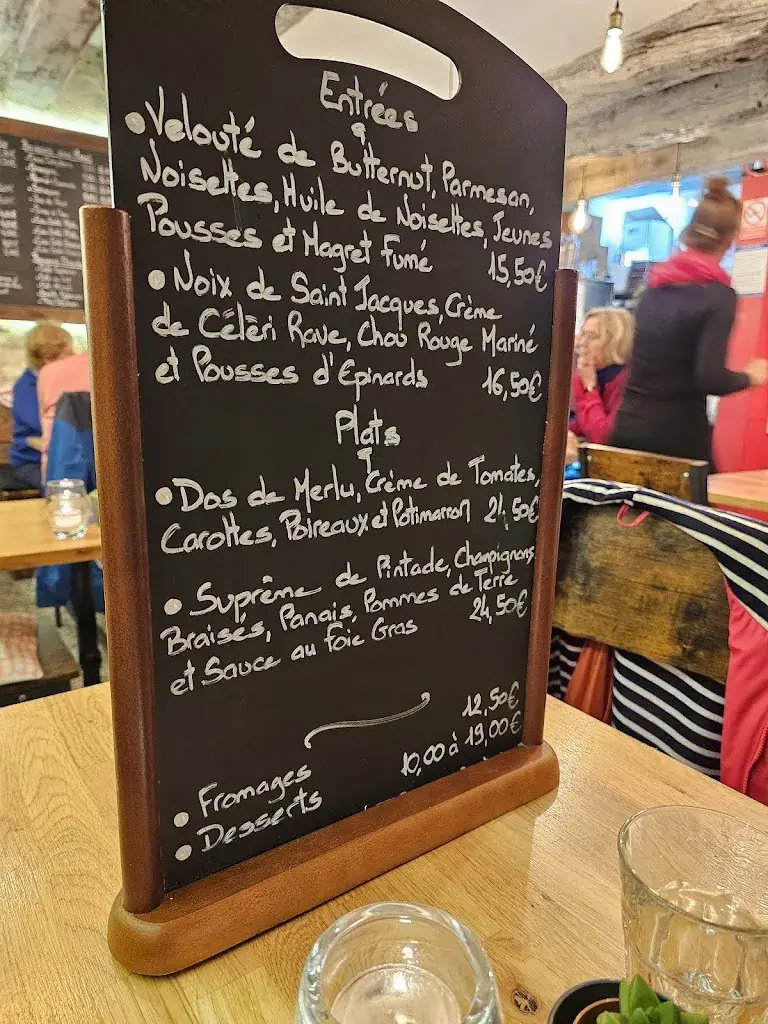 Entrées
• Velouté de Butternut, Parmesan,
Noisettes, Huile de Noisettes, Jeunes
Pousses et Magret Fumé 15,50€
• Noix de Saint Jacques, Crème
de Céleri Rave, Chou Rouge Mariné
et Pousses d'Epinards 16,50€
Plats
• Dos de Merlu, Crème de Tomates,
Carottes, Poireaux et Potimarron 24,50€
• Suprême de Pintade, Champignons
Braisés, Panais, Pommes de Terre
et Sauce au Foie Gras 24,50€
• Fromages 12,50€
• Desserts 10,00 à 19,00€